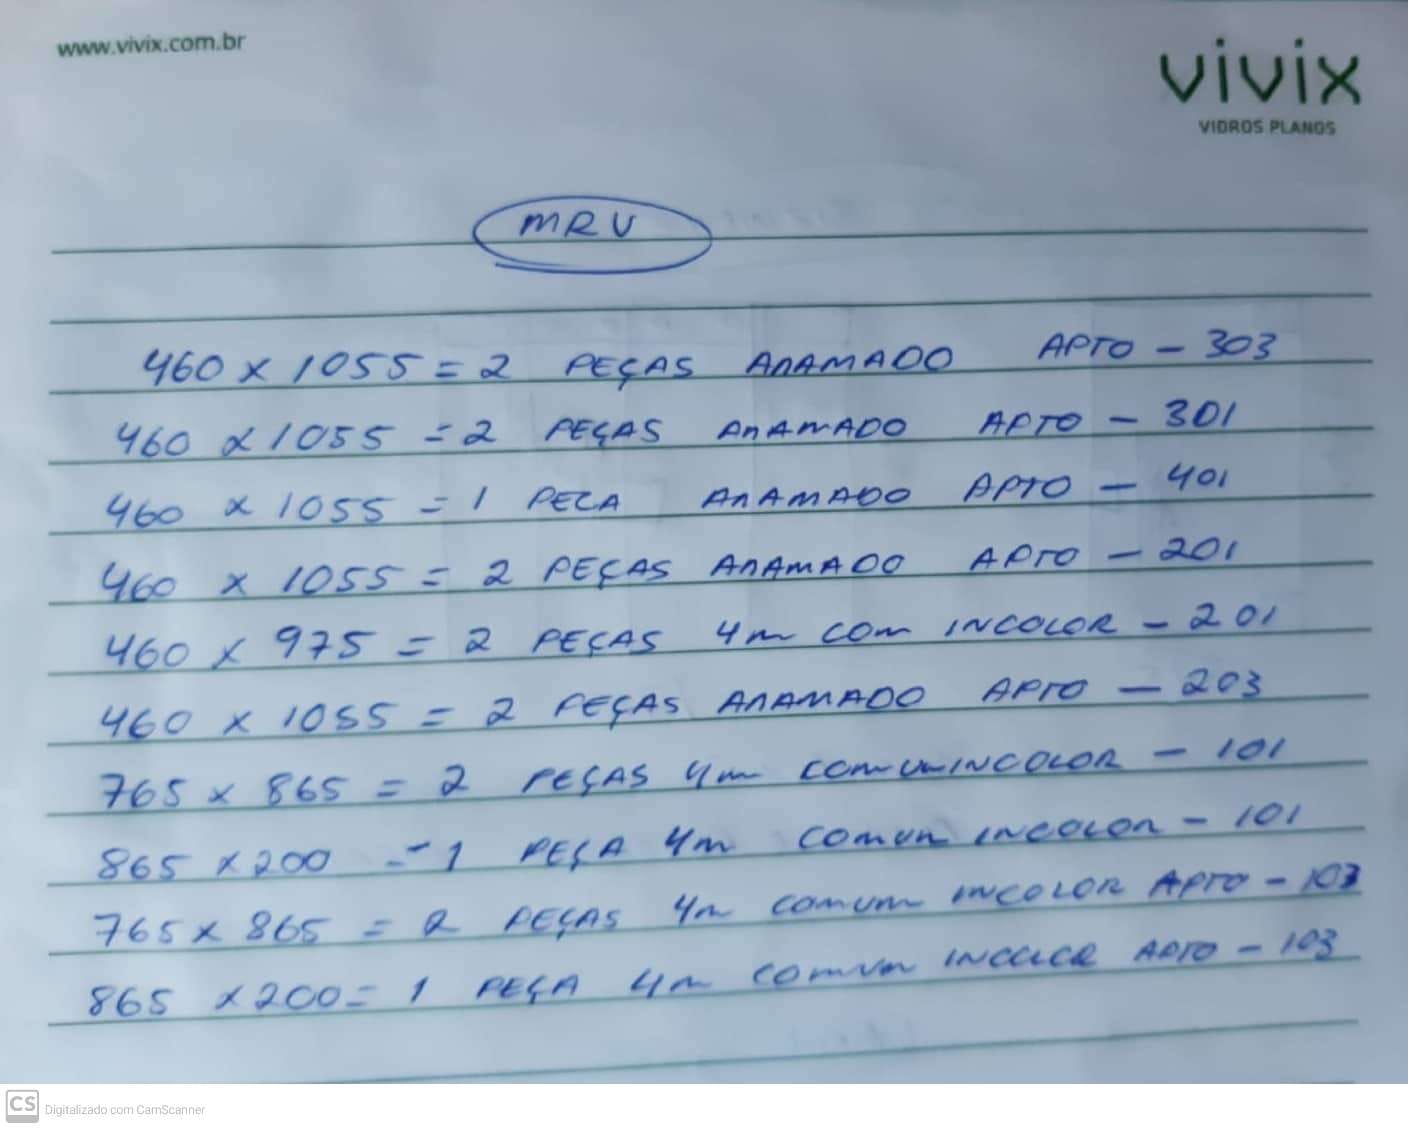 www.vivix.com.br
vivix
VIDROS PLANOS
MRV
460 x 1055 = 2 PEÇAS ARAMADO APTO - 303
460 x 1055 = 2 PEÇAS ARAMADO APTO - 301
460 x 1055 = 1 PEÇA ARAMADO APTO - 401
460 x 1055 = 2 PEÇAS ARAMADO APTO - 201
460 x 975 = 2 PEÇAS 4m com INCOLOR - 201
460 x 1055 = 2 PEÇAS ARAMADO APTO - 203
765 x 865 = 2 PEÇAS 4m comum INCOLOR - 101
865 x 200 = 1 PEÇA 4m comum INCOLOR - 101
765 x 865 = 2 PEÇAS 4m comum INCOLOR APTO - 103
865 x 200 = 1 PEÇA 4m comum INCOLOR APTO - 103
CS Digitalizado com CamScanner